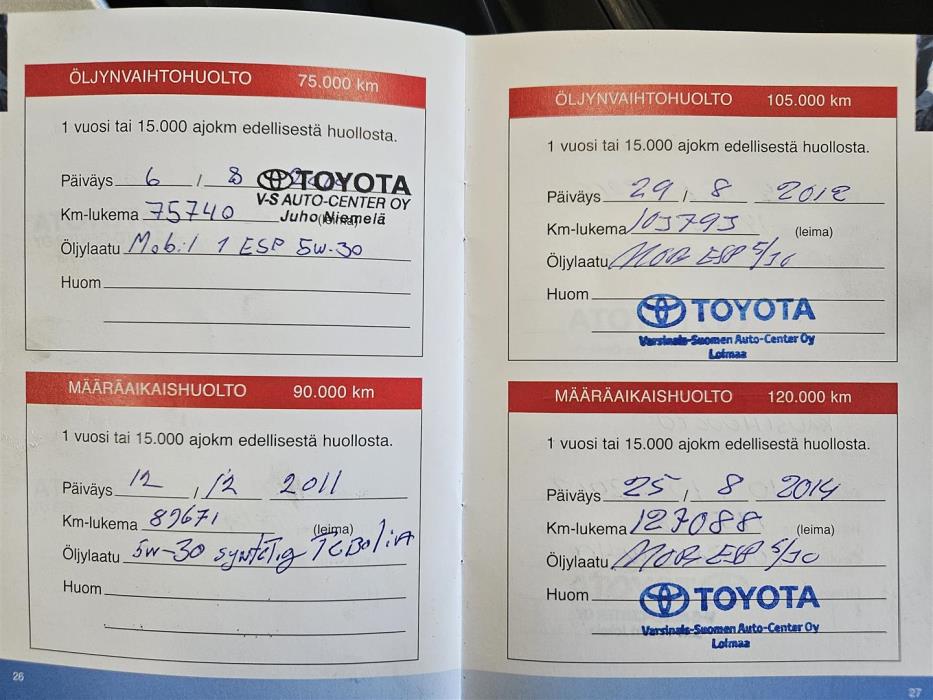 ÖLJYNVAIHTOHUOLTO 75.000 km
1 vuosi tai 15.000 ajokm edellisestä huollosta.
Päiväys 6 / 8
TOYOTA
V-S AUTO-CENTER OY
Juho Niemelä
Km-lukema 75740 (leima)
Öljylaatu Mobil 1 ESP 5W-30
Huom
MÄÄRÄAIKAISHUOLTO 90.000 km
1 vuosi tai 15.000 ajokm edellisestä huollosta.
Päiväys 12 / 12 2011
Km-lukema 89671 (leima)
Öljylaatu 5W-30
Huom
26
ÖLJYNVAIHTOHUOLTO 105.000 km
1 vuosi tai 15.000 ajokm edellisestä huollosta.
Päiväys 29 / 8 2012
Km-lukema 103793 (leima)
Öljylaatu MOB ESP 5/30
Huom
TOYOTA
Varsinais-Suomen Auto-Center Oy
Loimaa
MÄÄRÄAIKAISHUOLTO 120.000 km
1 vuosi tai 15.000 ajokm edellisestä huollosta.
Päiväys 25 / 8 2014
Km-lukema 127088 (leima)
Öljylaatu MOB ESP 5/30
Huom
TOYOTA
Varsinais-Suomen Auto-Center Oy
Loimaa
27